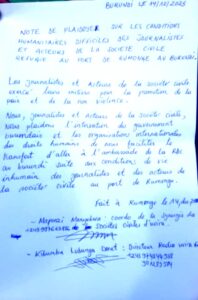 BURUNDI LE 14/12/2025
NOTE DE PLAIDOYER SUR LES CONDITIONS
HUMANITAIRES DIFFICILES DES JOURNALISTES
ET ACTEURS DE LA SOCIETE CIVILE
REFUGIE AU PORT DE RUMONGE AU BURUNDI.
Les journalistes et acteurs de la société civile
exercé leurs métiers pour la promotion de la
paix et de la non violence.
Nous, journalistes et acteurs de la société civile,
Nous plaidons l'intervention du gouvernement
burundais et les organisations internationales
des droits humains de nous faciliter le
transfert d'aller à l'ambassade de la RDC
au burundi suite aux conditions de vie
inhumain des journalistes et des acteurs de
la société civile au port de Rumonge.
Fait à Rumonge le 14
coordo de la Synergie des
Sociétés Civiles d'uvira.
Directeur Radio